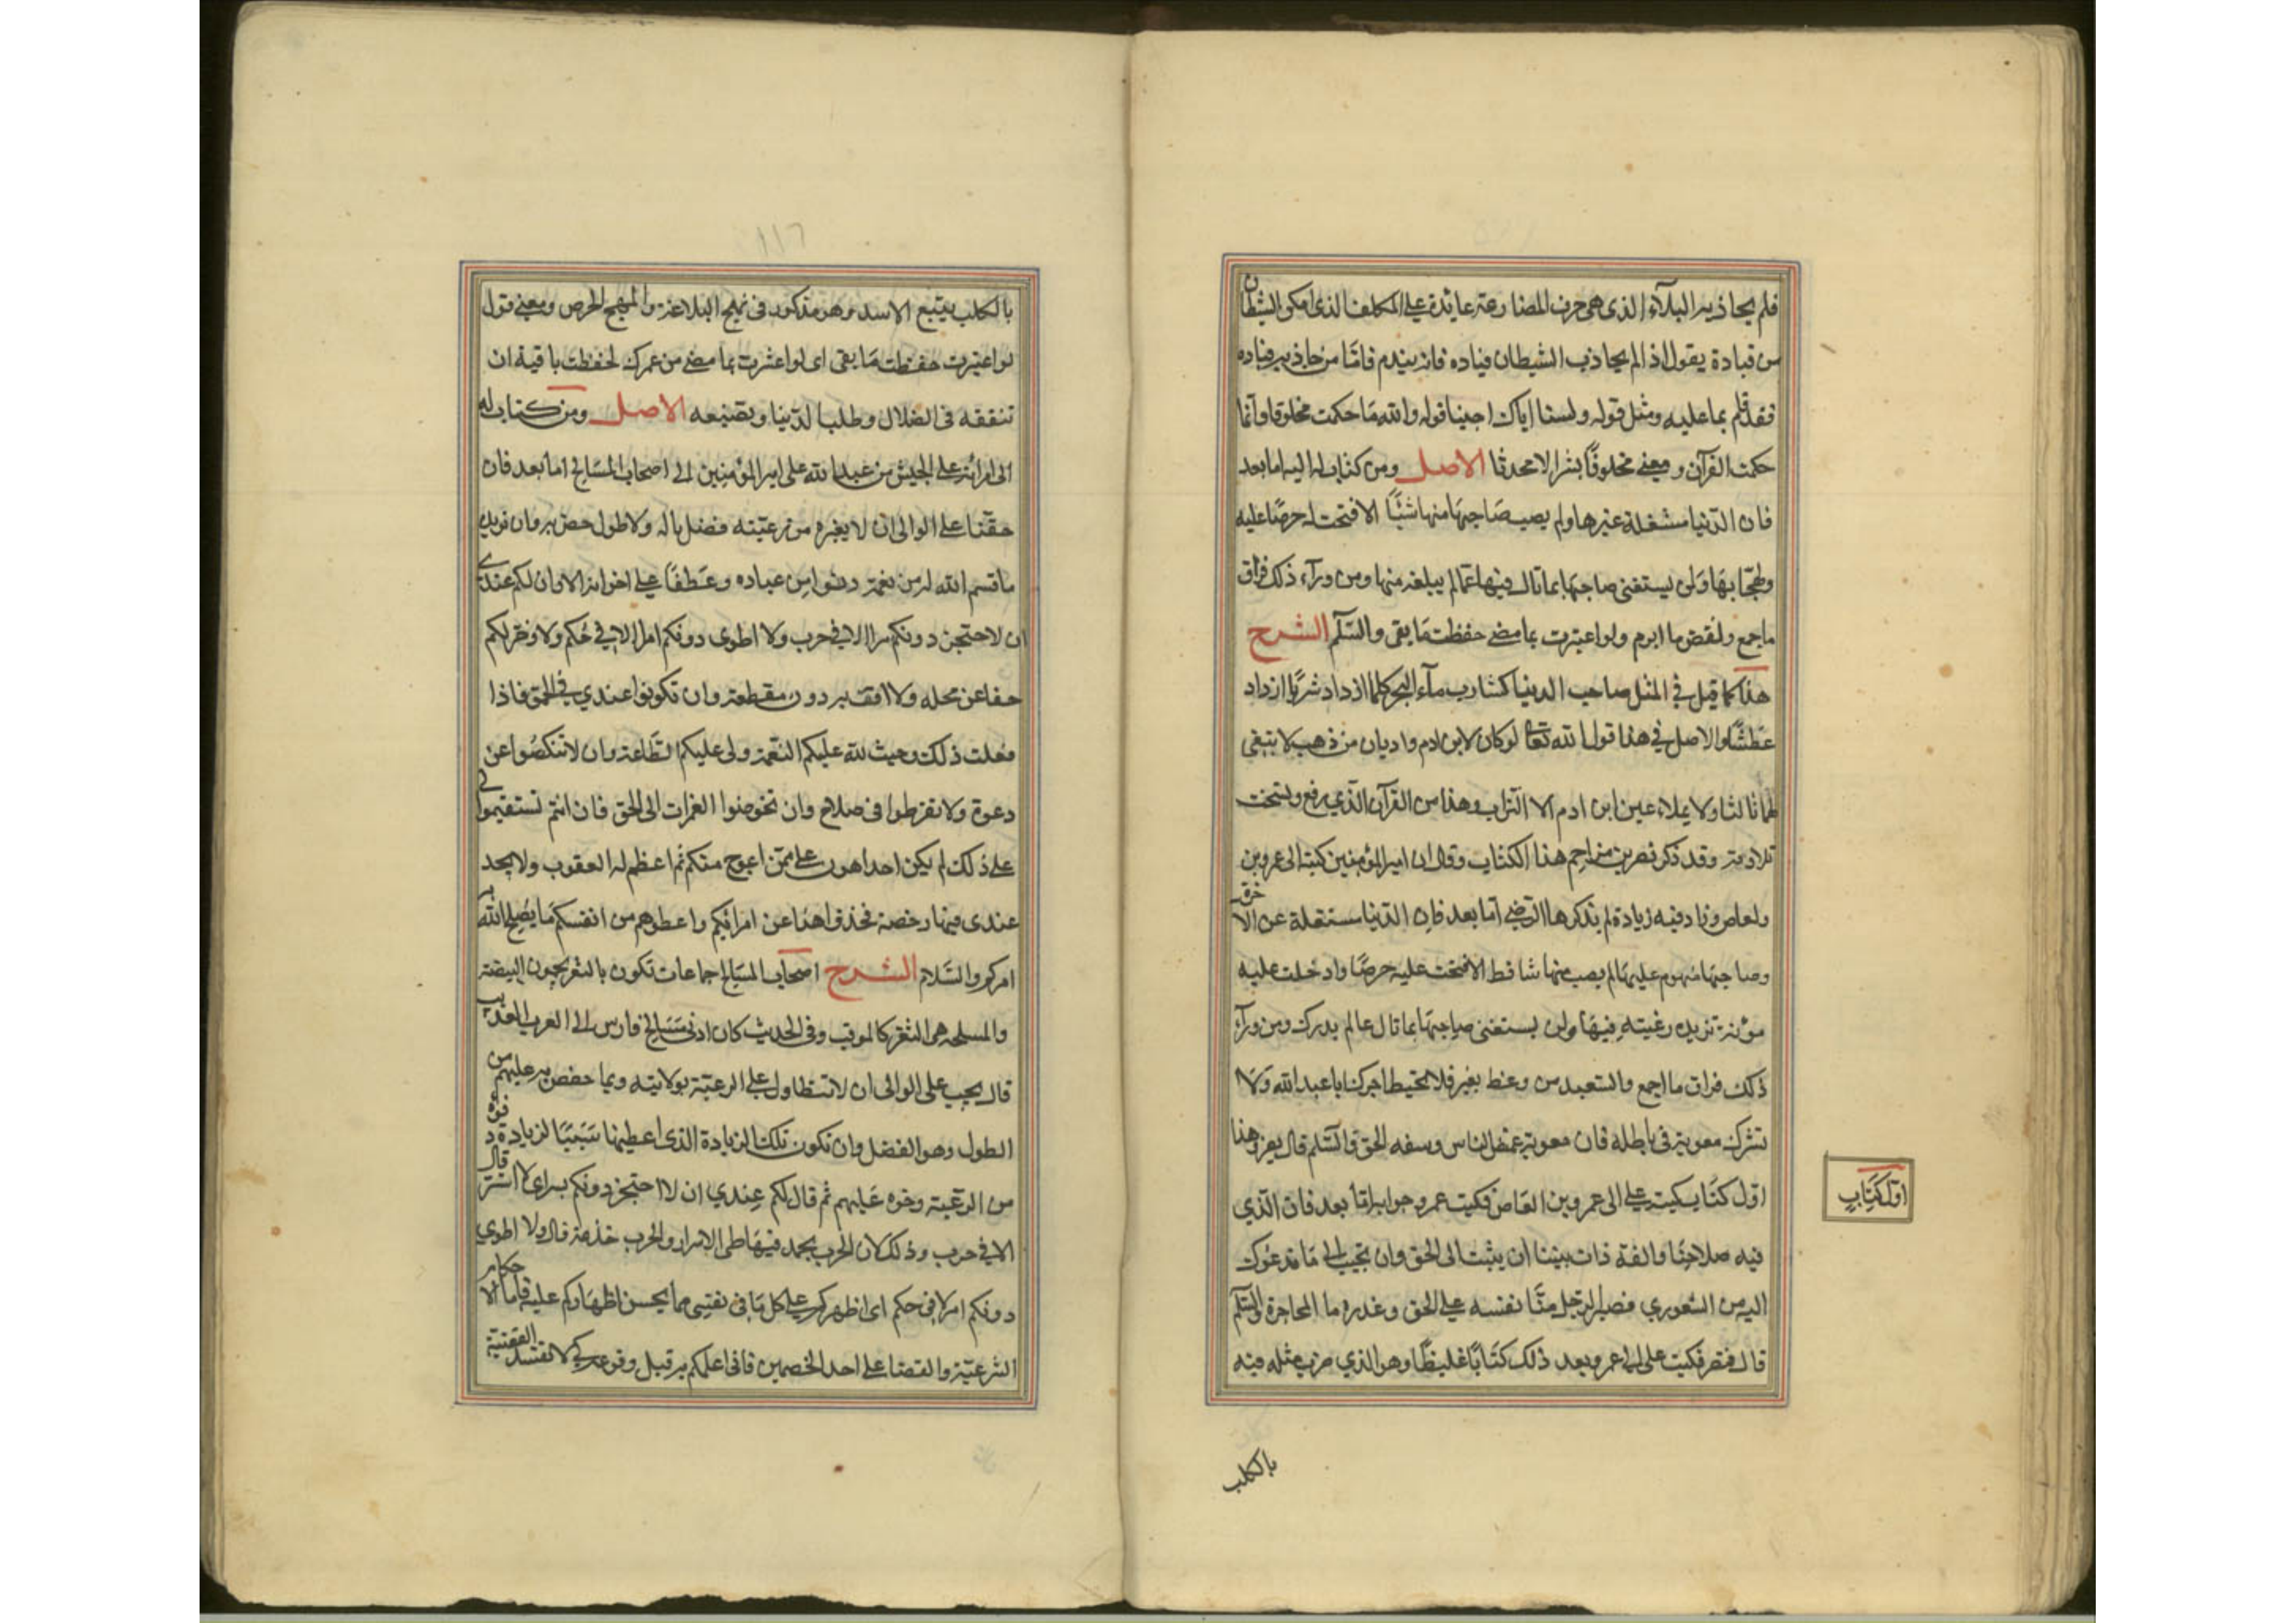 فلم يجاذبه البلاء الذى هى حرف المضارعة عايدة على المكلف الذى امكن الشيطان
من قيادة يقول اذا لم يجاذب الشيطان قياده فانه يندم فامّا من جاذبه قياده
فقد قام بما عليه ومثل قوله ولسنا اياك اجبنا قوله والله ما حكمت مخلوقا وانما
حكمت القرآن ومعنى مخلوقًا بشرا لا محدثا الاصل ومن كتاب له اليه اما بعد
فان الدّنيا مشغلة عن غيرها ولم يصب صَاحبهَا منها شيئًا الا فتحت له حرصًا عليه
ولهجًا بهَا وَلن يستغنى صاحبهَا بما نال فيها عمّا لم يبلغه منها ومن ورآء ذلك فراق
ما جمع ونقض ما ابرم ولو اعتبرت بما مضى حفظت مَا بقى والسّلم الشرح
هذا كما قيل في المثل صاحب الدينا كشارب مآء البحر كلما ازداد شربًا ازداد
عَطشًا والاصل في هذا قول الله تعالى لو كان لابن ادم واديان من ذهب لابتغى
لهما ثالثا ولا يملاء عين ابن ادم الا التراب وهذا من القرآن الذي رفع ونسخت
تلاوته وقد ذكر نصر بن مزاحم هذا الكتاب وقال ان امير المؤمنين كتبه الى عمرو بن
ولعاص وزاد فيه زيادة لم يذكرها الرّضي امّا بعد فان الدّنيا مشتغلة عن الاخرة
وصاحبهَا منهوم عليهَا لم يصب منها شيئا قط الا فتحت عليه حرصًا وادخلت عليه
مؤنة تزيده رغبته فيهَا ولن يستغنى صاحبهَا بما نال عما لم يدرك ومن ورآء
ذلك فراق ما اجمع والسّعيد من وعظ بغيره فلا تحيط اجرك ابا عبد الله وَلا
تشرك معوية فى باطله فان معوية غمض الناس وسفه الحق والسّلم قال نصر وهذا
اول كتَاب كتبه على الى عمرو بن العَاص فكتب عمرو جوابه امّا بعد فان الّذي
فيه صلاحنا والفة ذات بيننا ان يثبت الى الحق وان تجيب الى مَا تدعوك
اليه من الشورى فصبر الرّجل منّا نفسه على الحق وغدره ما المحاجزة والسّلم
قال نصر فكتب على الى عمرو بعد ذلك كتَابًا غليظًا وهو الذي ضرب مثله فيه
بالكلب
اوّل كِتَابٍ
١١٦
بالكلب يتبع الاسد وهو مذكور فى نهج البلاغة والهج الحرص ومعنى قول
لو اعتبرت حفظت مَا بقى اى لو اعتبرت بما مضى من عمرك لحفظت باقيه ان
تنفقه فى الضلال وطلب الدّنيا وتضيعه الاصل ومن كتاب له
الى امرائه على الجيش من عبد الله على امير المؤمنين الى اصحاب المسَالح اما بعد فان
حقًنا على الوالى ان لا يغيره من رعيّته فضل ناله ولا طول خص به وان يزيده
ما قسم الله له من نعمة دنوا من عباده وعَطفًا على اخوانه الا وان لكم عندي
ان لا احتجز دونكم سرا الا في حرب ولا اطوى دونكم امرا الا في حُكم ولا اؤخر لكم
حقا عن محله ولا اقف به دون مقطعه وان تكونوا عندي في الحق فاذا
فعلت ذلك وجبت لله عليكم النعمة ولى عليكم الطّاعة وان لا تنكصُوا عن
دعوة ولا تفرطوا فى صلاح وان تخوضوا الغمرات الى الحق فان انتم تستقيموا لي
على ذلك لم يكن احد اهون على ممّن اعوج منكم ثم اعظم له العقوب ولا يجد
عندى فيها رخصة فخذوا هذا عن امرائكم واعطوهم من انفسكم مَا يصلح الله به
امركم والسّلام الشرح اصحَاب المسَالح جماعات تكون بالثغر يحمون البيضة
والمسلحه هى الثغر كالموقب وفى الحديث كان ادنى مَسَالح فارس الى العرب العذيب
قال يجب على الوالى ان لا تتطاول على الرعيّة بولايته وبما خصّ به عليهم من
الطول وهو الفضل وان تكون تلك الزيادة الذى اعطيها سَبَبًا لزيادة دنوه
من الرعيّة وحنوه عَليهم ثم قال لكم عِندي ان لا احتجز دونكم بسر اى لا استر قال
الا في حرب وذلك لان الحرب يحمد فيهَا طى الاسرار والحرب خدعة قال ولا اطوي
دونكم امرا الا فى حكم اى اظهركم على كل مَا فى نفسي مما يحسن اظهَاركم عليه فاما الاحكام
الشرعيّة والقضا على احد الخصمين فانى لا اعلمكم به قبل وقوعه كي لا تفسد القضية